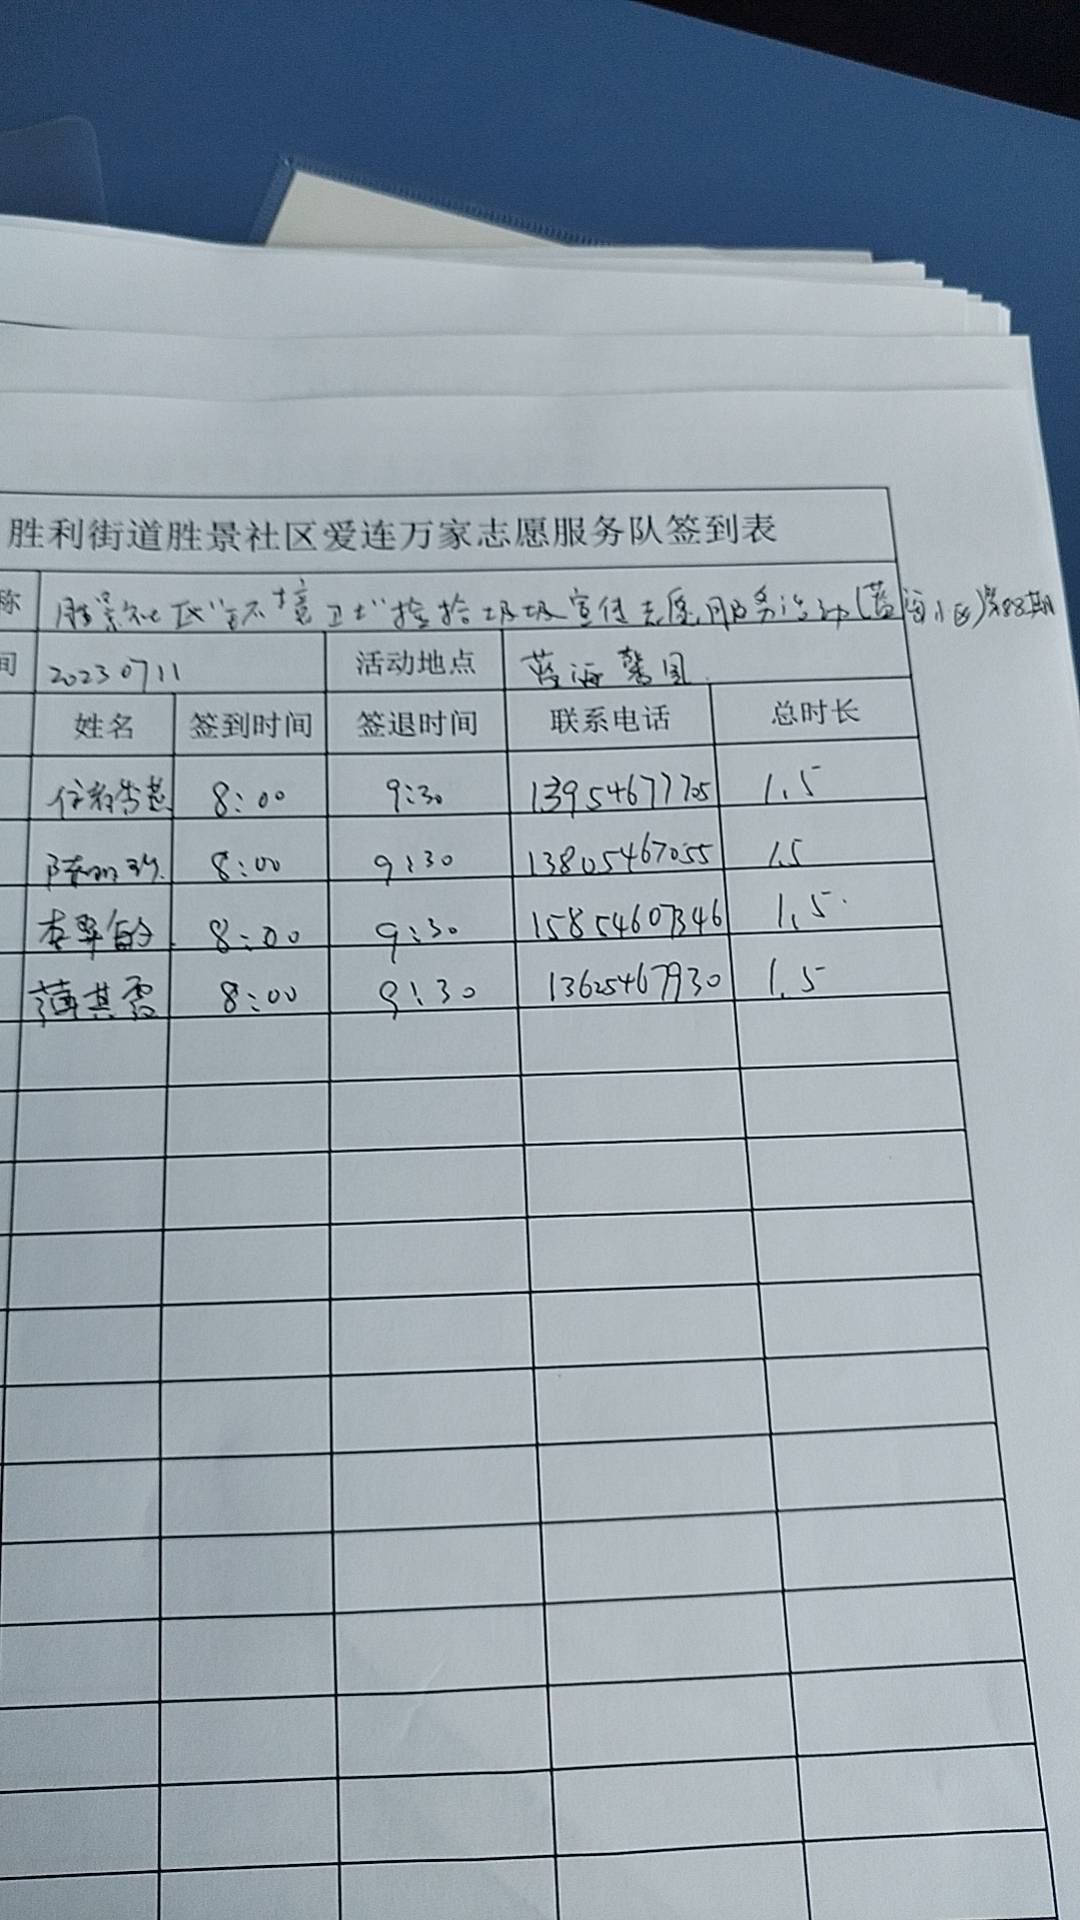 胜利街道胜景社区爱连万家志愿服务队签到表
称 胜景社区"环境卫士"捡拾垃圾宣传志愿服务活动(蓝海小区)第88期
间 20230711 活动地点 蓝海馨园
姓名 签到时间 签退时间 联系电话 总时长
8:00 9:30 13954677705 1.5
8:00 9:30 13805467055 1.5
8:00 9:30 15854607346 1.5
薄其霞 8:00 9:30 13625467930 1.5